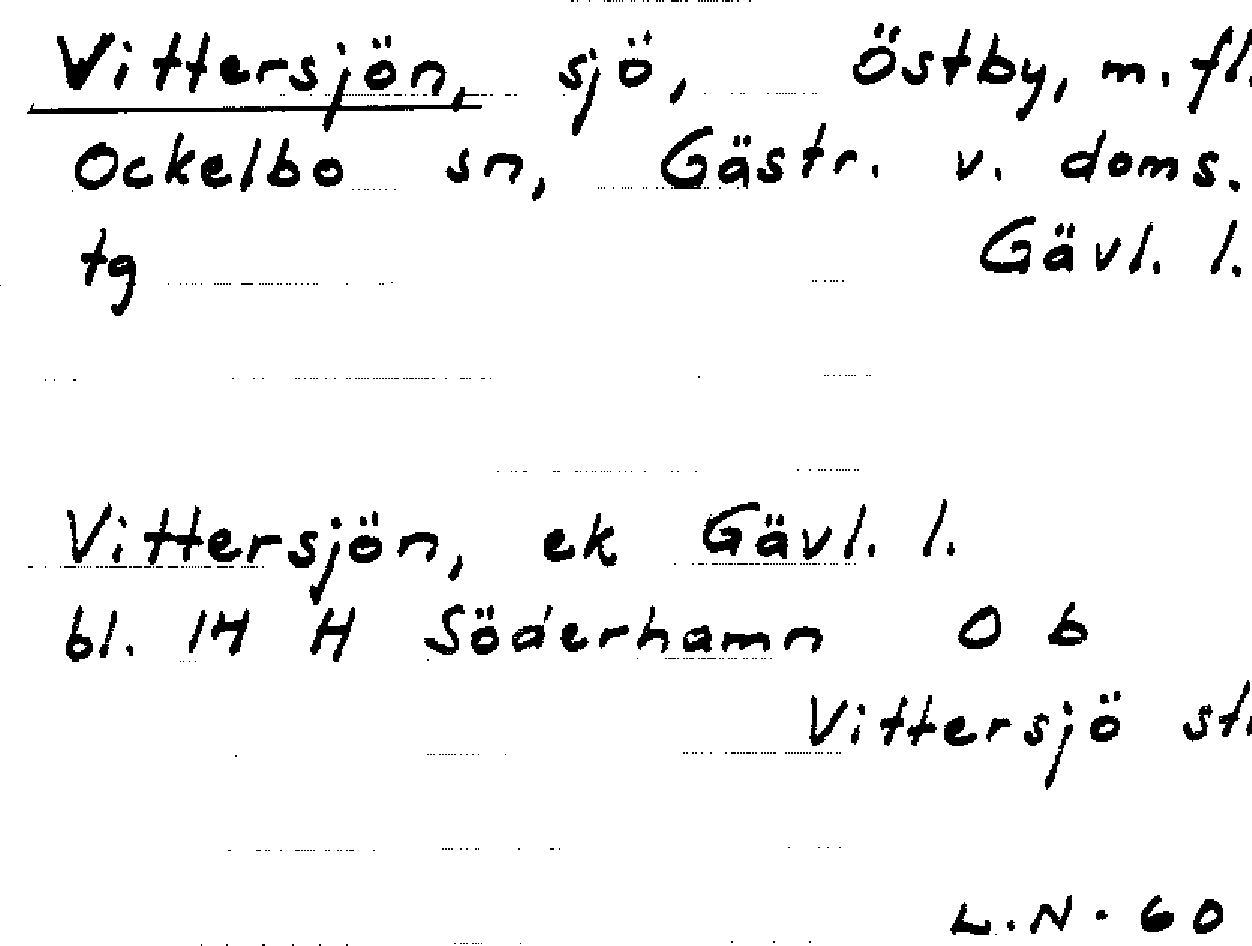 Vittersjön, sjö, Östby, m. fl.
Ockelbo sn, Gästr. v. doms.
tg Gävl. l.
Vittersjön, ek Gävl. l.
bl. 14 H Söderhamn 0 b
Vittersjö
L.N. 60